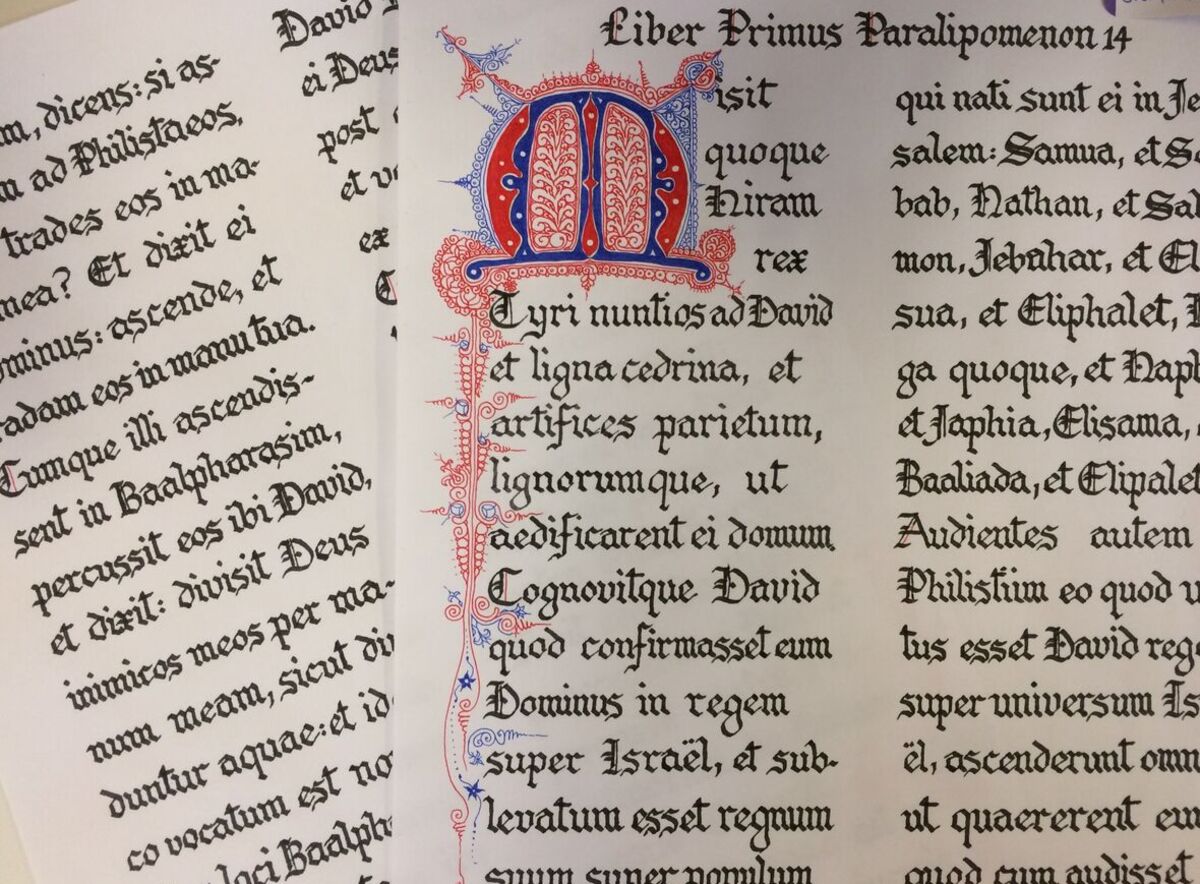 m, dicens: si as-
m ad Philistaeos,
trades eos in ma-
mea? Et dixit ei
ominus: ascende, et
radam eos in manu tua.
Cumque illi ascendis-
sent in Baalpharasim,
percussit eos ibi David,
et dixit: divisit Deus
inimicos meos per ma-
num meam, sicut div
duntur aquae: et id
co vocatum est no
loci Baalpha
David
ei Deus
post
et v
ex
Liber Primus Paralipomenon 14
Misit
quoque
Hiram
rex
Tyri nuntios ad David
et ligna cedrina, et
artifices parietum,
lignorumque, ut
aedificarent ei domum.
Cognovitque David
quod confirmasset eum
Dominus in regem
super Israël, et sub-
levatum esset regnum
suum super populum
qui nati sunt ei in Je
salem: Samua, et So
bab, Nathan, et Sal
mon, Jebahar, et El
sua, et Eliphalet,
ga quoque, et Naph
et Japhia, Elisama,
Baaliada, et Elipalet
Audientes autem
Philistiim eo quod u
tus esset David reg
super universum Is
ël, ascenderunt omn
ut quaererent eum
quod cum audisset